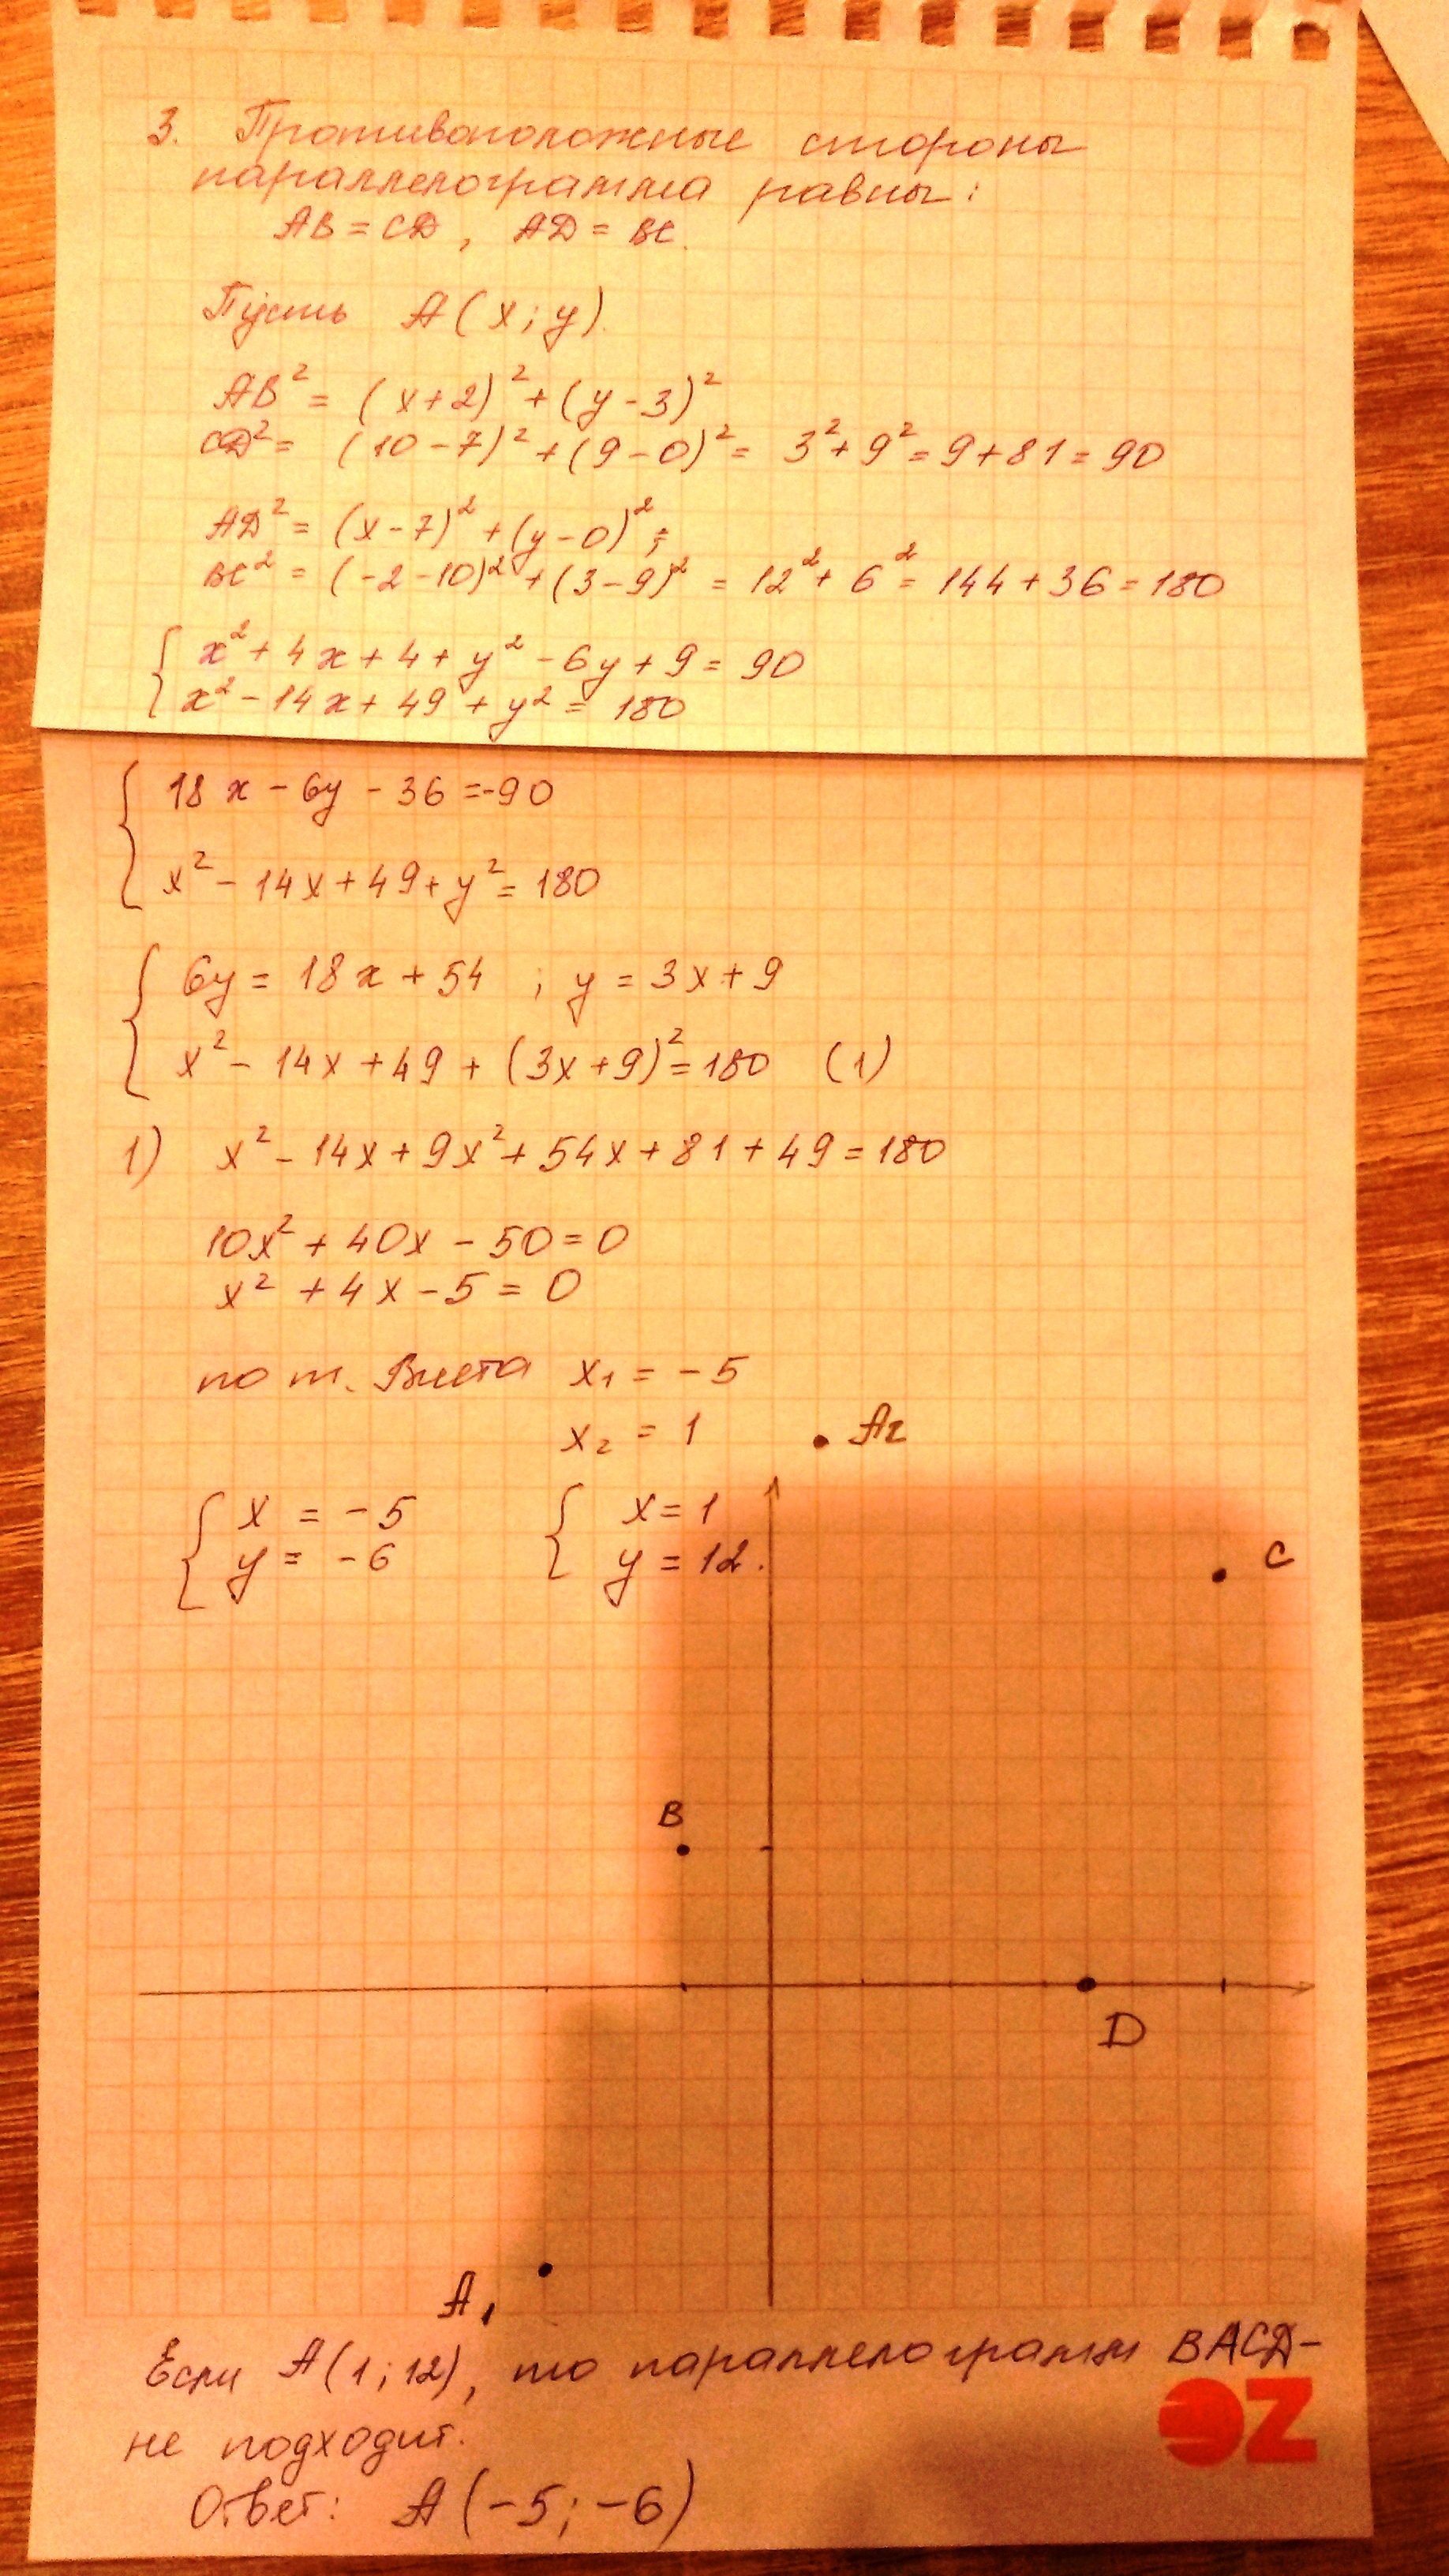 3. Противоположные стороны
параллелограмма равны:
AB = CD, AD = BC.
Пусть A(x; y).
AB² = (x+2)² + (y-3)²
CD² = (10-7)² + (9-0)² = 3² + 9² = 9+81 = 90
AD² = (x-7)² + (y-0)²;
BC² = (-2-10)² + (3-9)² = 12² + 6² = 144+36 = 180
{ x² + 4x + 4 + y² - 6y + 9 = 90
x² - 14x + 49 + y² = 180
{ 18x - 6y - 36 = -90
x² - 14x + 49 + y² = 180
{ 6y = 18x + 54 ; y = 3x + 9
x² - 14x + 49 + (3x+9)² = 180 (1)
1) x² - 14x + 9x² + 54x + 81 + 49 = 180
10x² + 40x - 50 = 0
x² + 4x - 5 = 0
по т. Виета x₁ = -5
x₂ = 1
A₂
{ x = -5 { x = 1
y = -6 y = 12.
C
B
D
A₁
Если A(1; 12), то параллелограмм BACD-
не подходит.
OZ
Ответ: A(-5; -6)